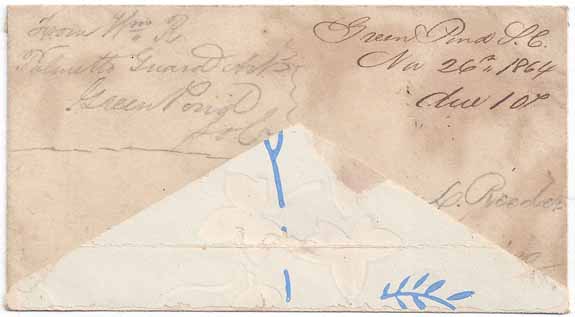 From Wm R
Palmetto Guard Art
Green Pond
S. C.
Green Pond S. C.
Nov 26th 1864
due 10c
Reeder